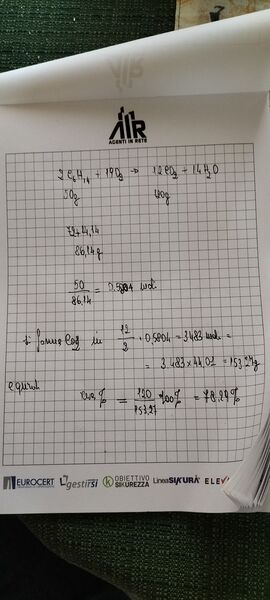 AIR
AGENTI IN RETE
2C₆H₁₄ + 19O₂ → 12CO₂ + 14H₂O
50g
72+14,14
86,14g
50/86,14 = 0.5804 mol
si forma CO₂ in 12/2 · 0,5804 = 3483 mol =
= 3.483 × 44.01 = 153,27g
quindi
% = 120/153,27 · 100% = 78,29%
EUROCERT gestirSi OBIETTIVO SIKUREZZA LineaSIKURA ELEV